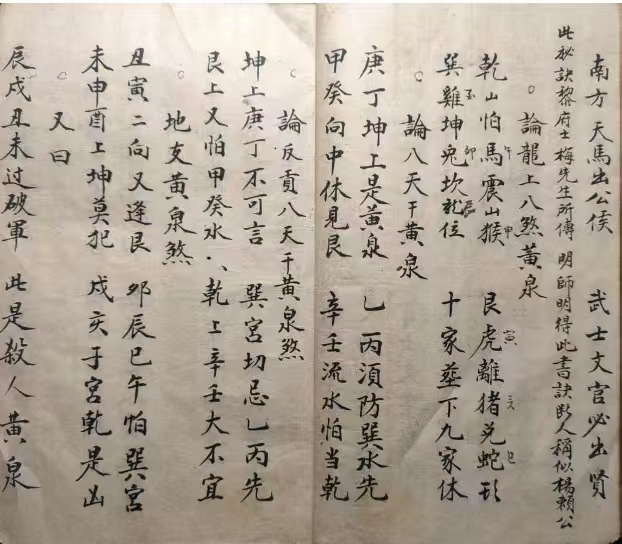 南方天馬出公侯 武士文官必出賢
此祕訣黎府士梅先生所傳 明師明得此書訣断人稱似楊賴公
。論龍上八煞黃泉
乾山怕馬午震山猴申 艮虎寅離猪亥兌蛇巳形
巽雞酉坤兔卯坎龙辰位 十家葬下九家休
。論八天干黃泉
庚丁坤上是黃泉 乙丙須防巽水先
甲癸向中休見艮 辛壬流水怕当乾
。論反貢八天干黃泉煞
坤上庚丁不可言 巽宮切忌乙丙先
艮上又怕甲癸水 乾上辛壬大不宜
。地支黃泉煞
丑寅二向又逢艮 夘辰巳午怕巽宮
未申酉上坤莫犯 戌亥于宮乾是凶
。又曰
辰戌丑未过破軍 此是殺人黃泉